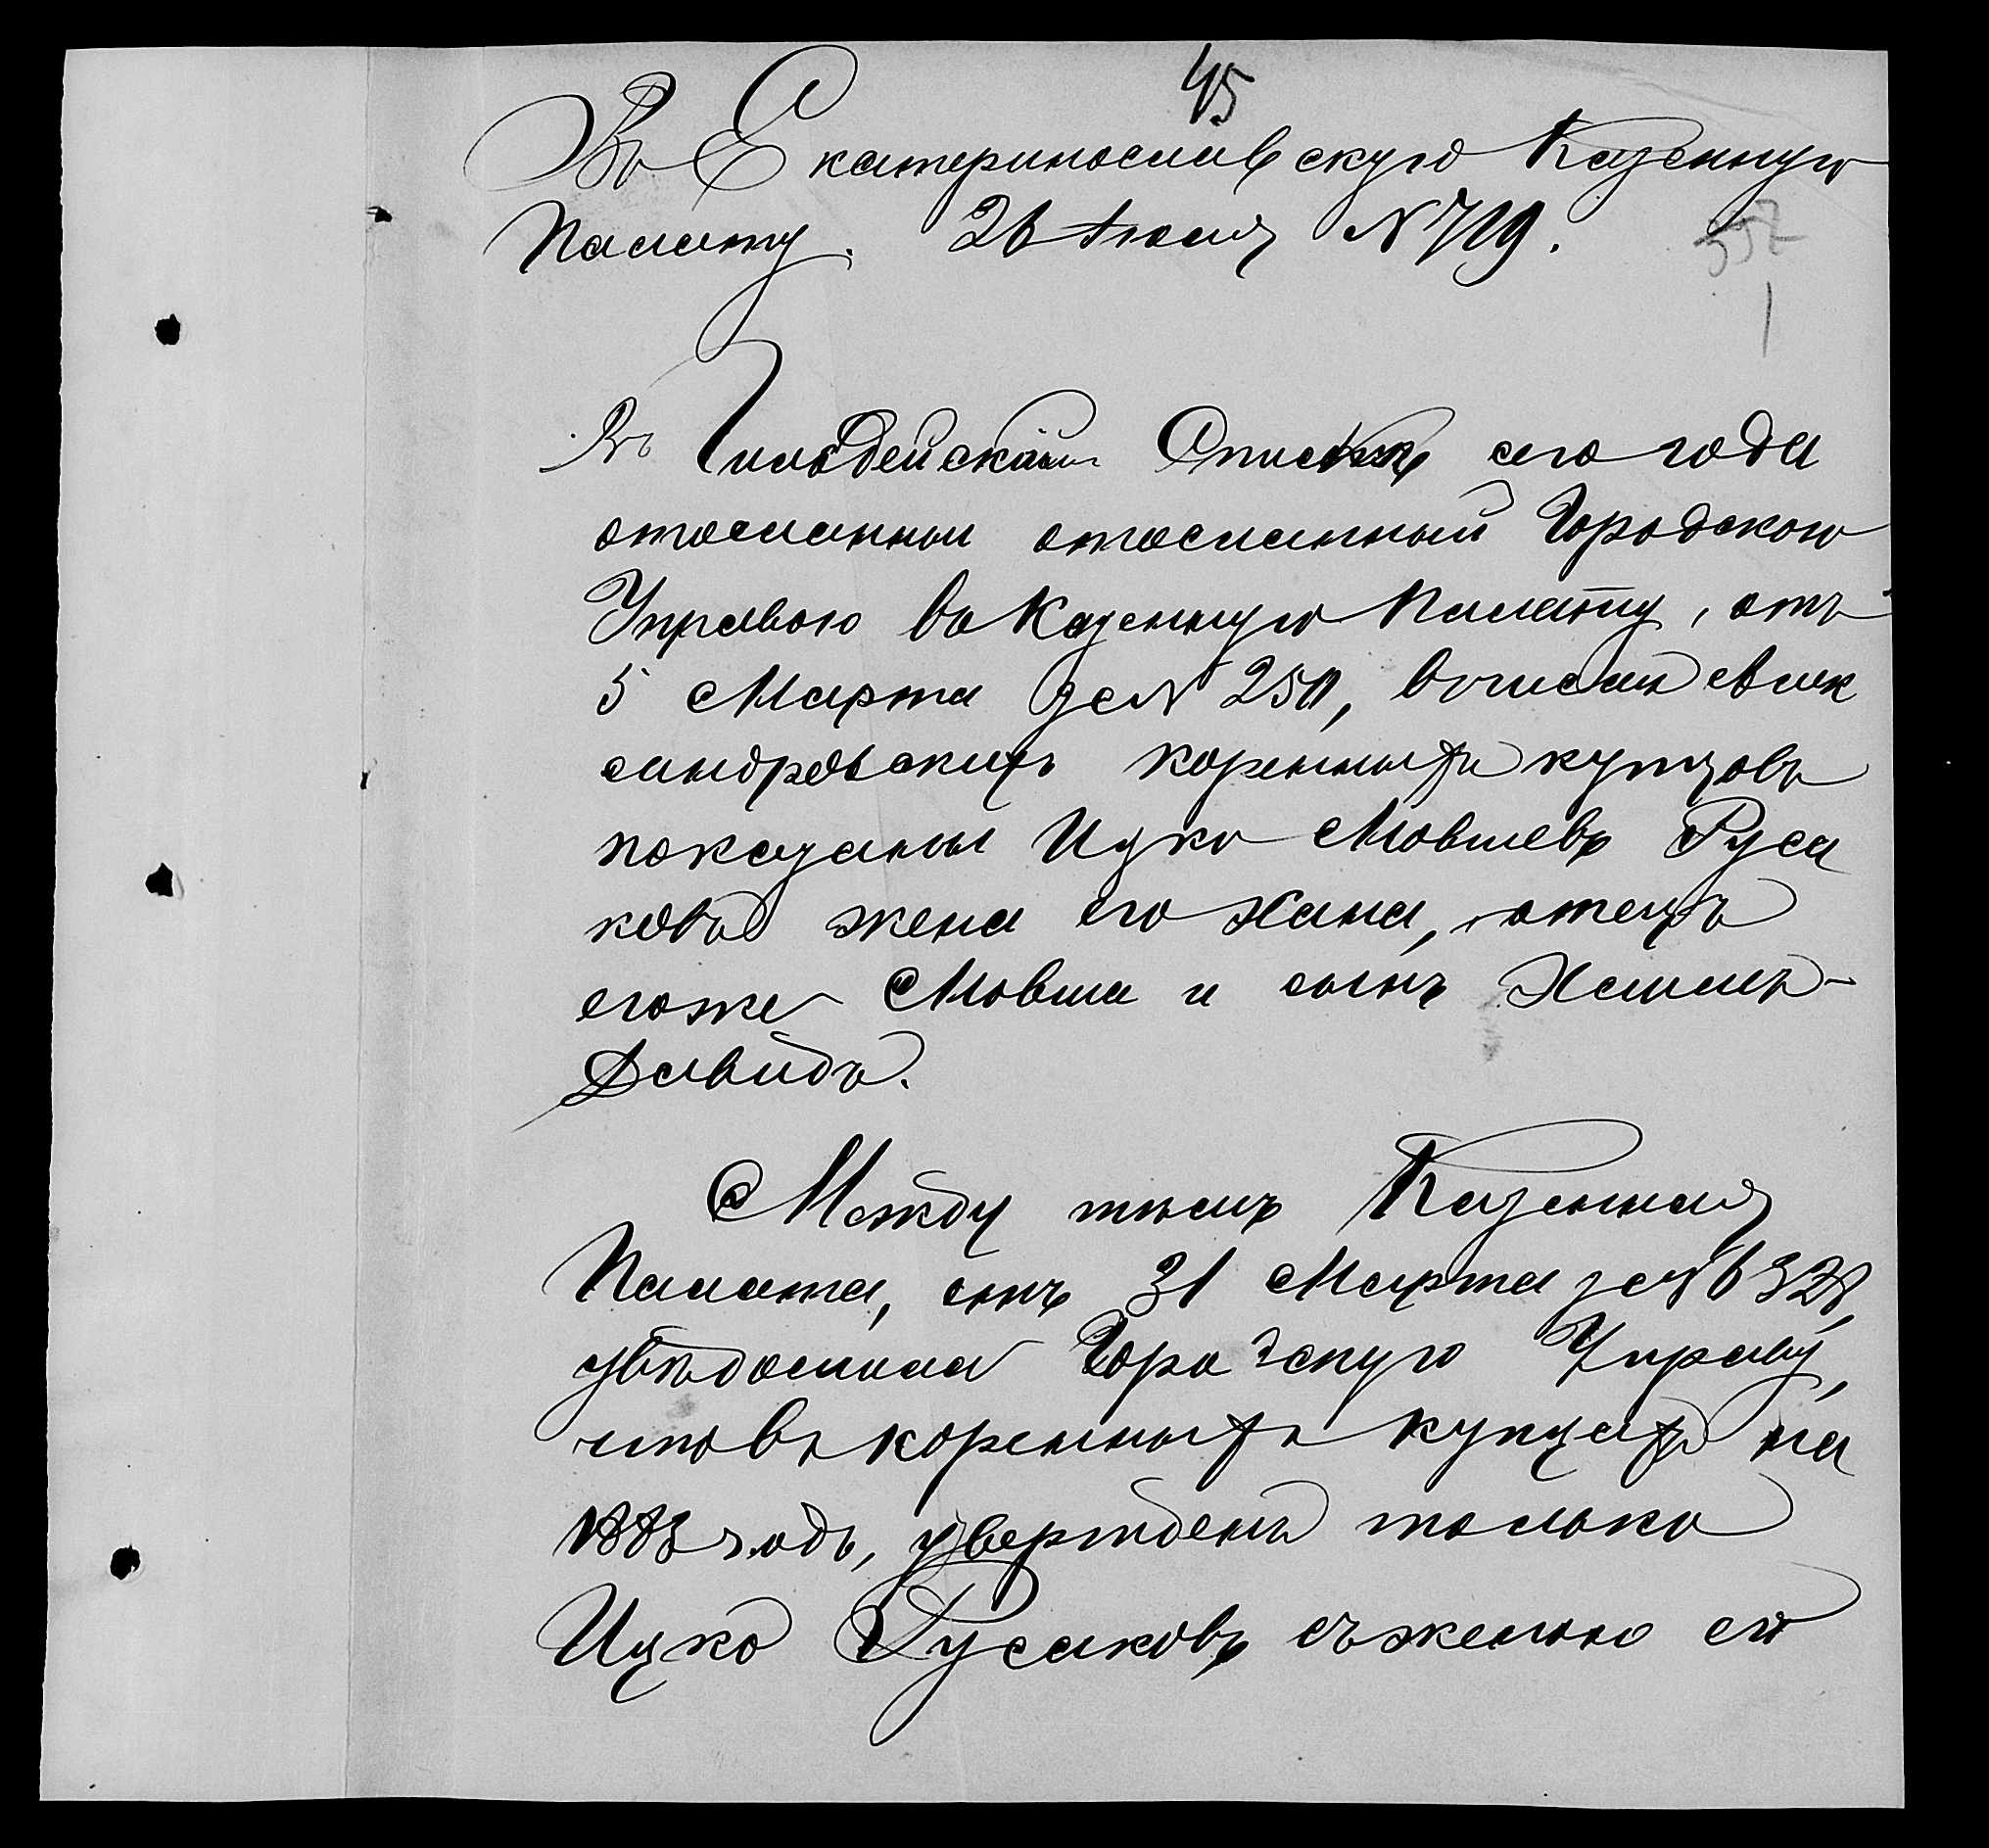 45
Въ Екатеринославскую Казенную
Палату. 26 Июля № 719.
357
1
Въ Гильдейскомъ Списке сего года
отосланны отосланный Городскою
Управою въ Казенную Палату, отъ
5 Марта за № 250, в числи Алек
сандровскихъ коренныхъ купцовъ
показаны Ицко Мовшевъ Руса
ковъ жена его Хана, отецъ
егоже Мовша и сынъ
Давидъ.
Между тѣмъ Казенная
Палата, отъ 31 Марта за № 6328,
увѣдомила Городскую Управу,
что въ коренныхъ купцахъ на
1883 годъ, утвержденъ только
Ицко Русаковъ съ женою его